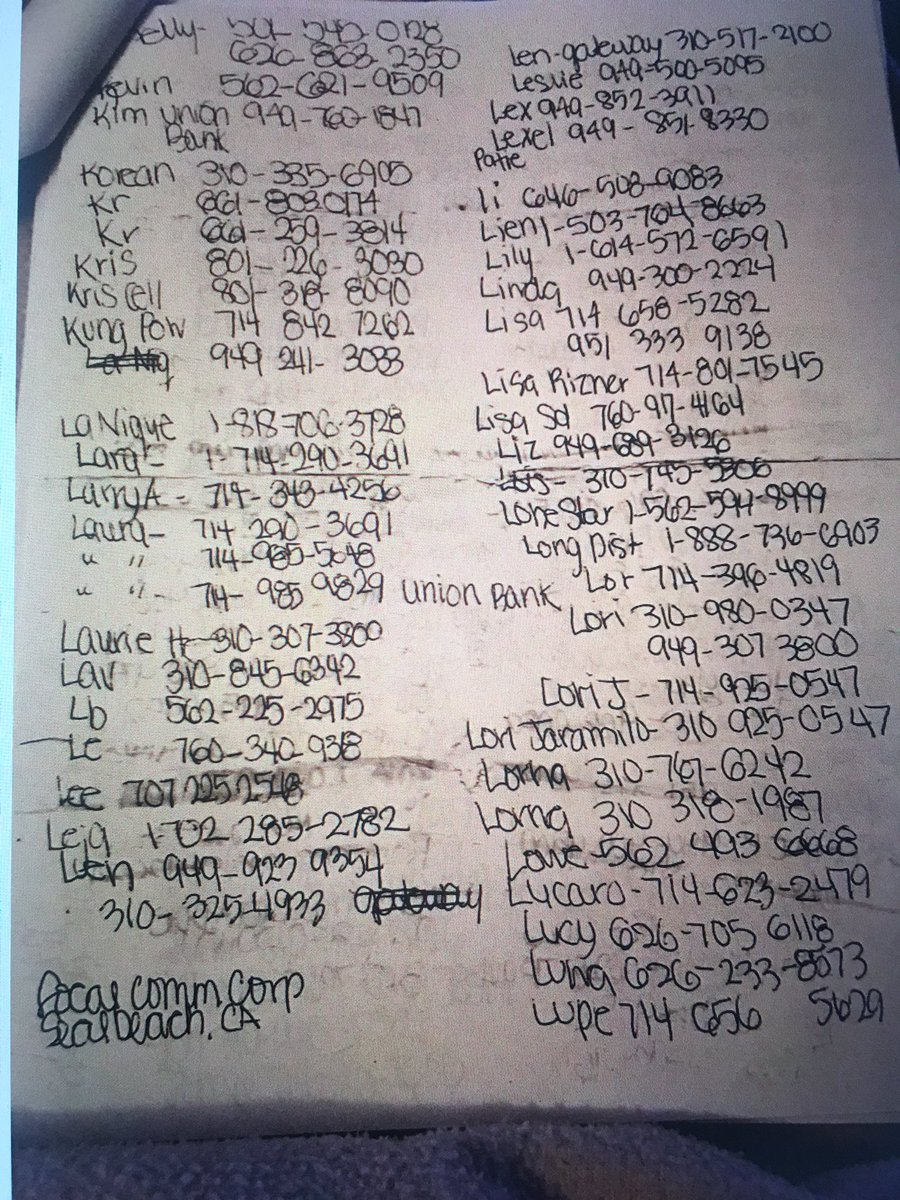 elly- 501-545-0128
626-863-2350
Kevin 562-621-9509
Kim Union 949-760-1847
Bank
Korean 310-335-6905
Kr 661-803-0174
Kr 661-259-3814
Kris 801-226-3030
Kris Cell 801-318-8090
Kung Pow 714 842 7262
949 241-3083
La Nique 1-818-706-3728
Lara- 1-714-290-3691
Larry A- 714-343-4256
Laura- 714 290-3691
" " 714-985-5648
" " - 714-985 9829 Union Bank
Laurie H-310-307-3800
Lav 310-845-6342
Lb 562-225-2975
Lc 760-340-9318
Lee 707 225 2548
Leja 1-702 285-2782
Luen 949-923 9354
310-325-4933 Gateway
Focas Comm. Corp
Seal beach, CA
Len-gateway 310-517-2100
Leslie 949-500-5095
Lex 949-852-3911
Lexel 949-851-8330
Patie
li 646-508-9083
Lien 1-503-704-8663
Lily 1-614-572-6591
Linda 949-300-2224
Lisa 714 658-5282
951 333 9138
Lisa Rizner 714-801-7545
Lisa Sd 760-97-4164
Liz 949-689-3126
Lois- 310-745-5306
Lone Star 1-562-594-8999
Long Dist 1-888-736-6903
Lor 714-396-4819
Lori 310-980-0347
949-307 3800
Lori J-714-925-0547
Lori Jaramilo-310 925-0547
Lorna 310-767-6242
Lorna 310 318-1987
Lowe-562 493 6668
Lucaro-714-623-2479
Lucy 626-705 6118
Luna 626-233-8573
Lupe 714 656 5629